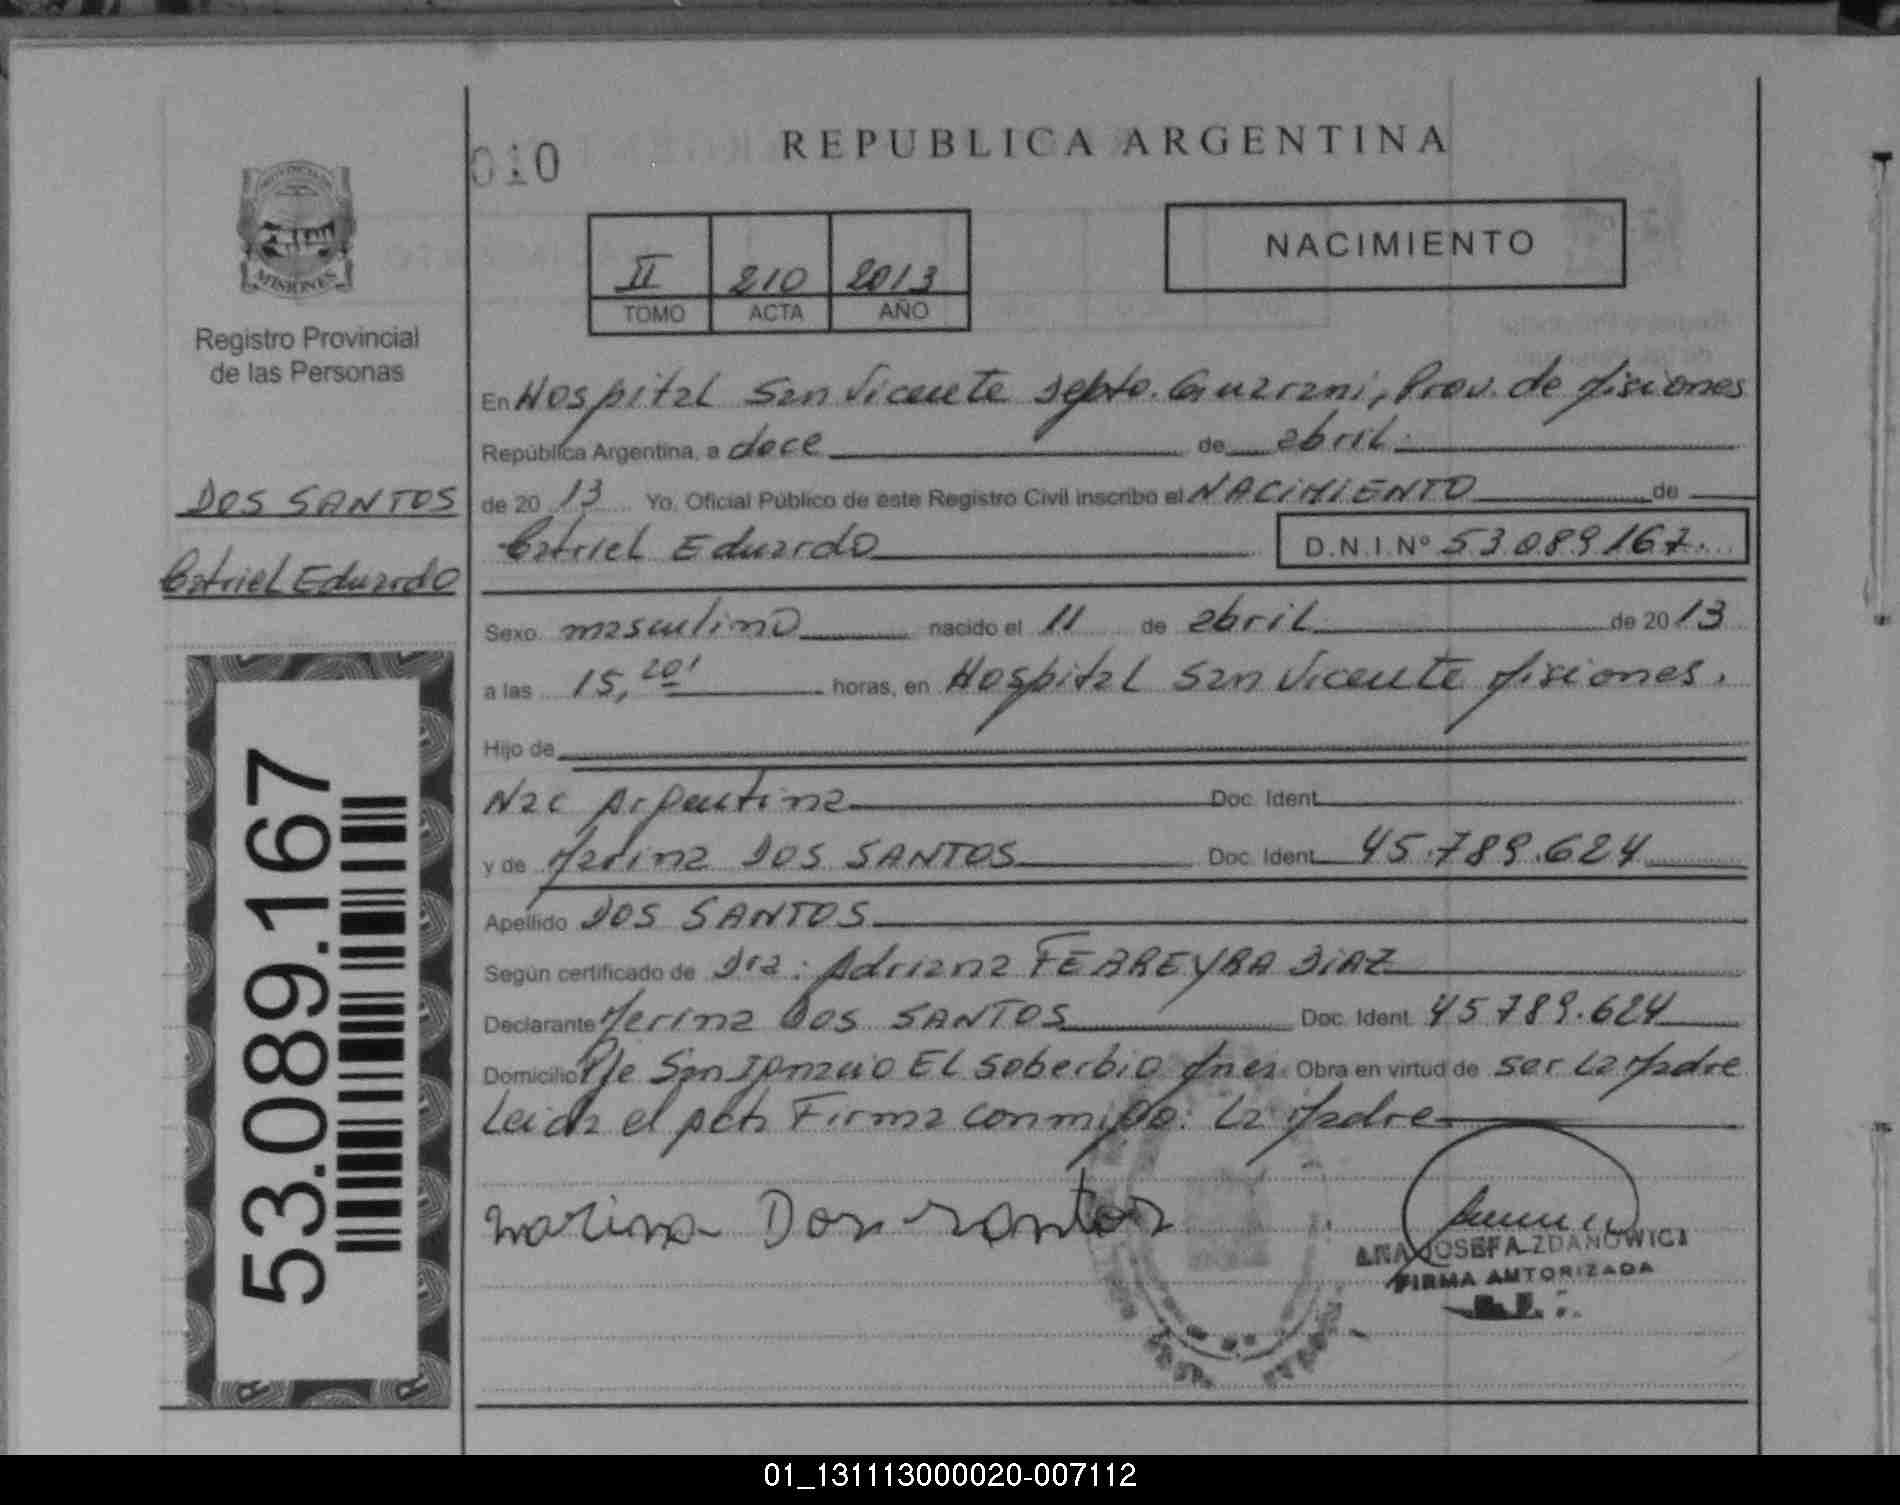 010
REPUBLICA ARGENTINA
PROVINCIA DE
MISIONES
Registro Provincial
de las Personas
II 210 2013
TOMO ACTA AÑO
NACIMIENTO
En Hospital San Vicente Depto. Guarani, Prov. de Misiones
República Argentina, a doce de abril
DOS SANTOS
de 20 13 Yo, Oficial Público de este Registro Civil inscribo el NACIMIENTO de
Catriel Eduardo D.N.I. Nº 53.089.167
Catriel Eduardo
Sexo masculino nacido el 11 de abril de 20 13
a las 15,20' horas, en Hospital San Vicente Misiones.
Hijo de
Nac Argentina Doc. Ident.
y de Marina DOS SANTOS Doc. Ident. 45.789.624
Apellido DOS SANTOS
Según certificado de Dra: Adriana FERREYRA DIAZ
Declarante Marina DOS SANTOS Doc. Ident. 45 789.624
Domicilio Pje San Ignacio El Soberbio Mnes Obra en virtud de ser la Madre
Leida el acta Firma conmigo: La Madre
marina Dos santos
ANA JOSEFA ZDANOWICZ
FIRMA AUTORIZADA
53.089.167
01_131113000020-007112